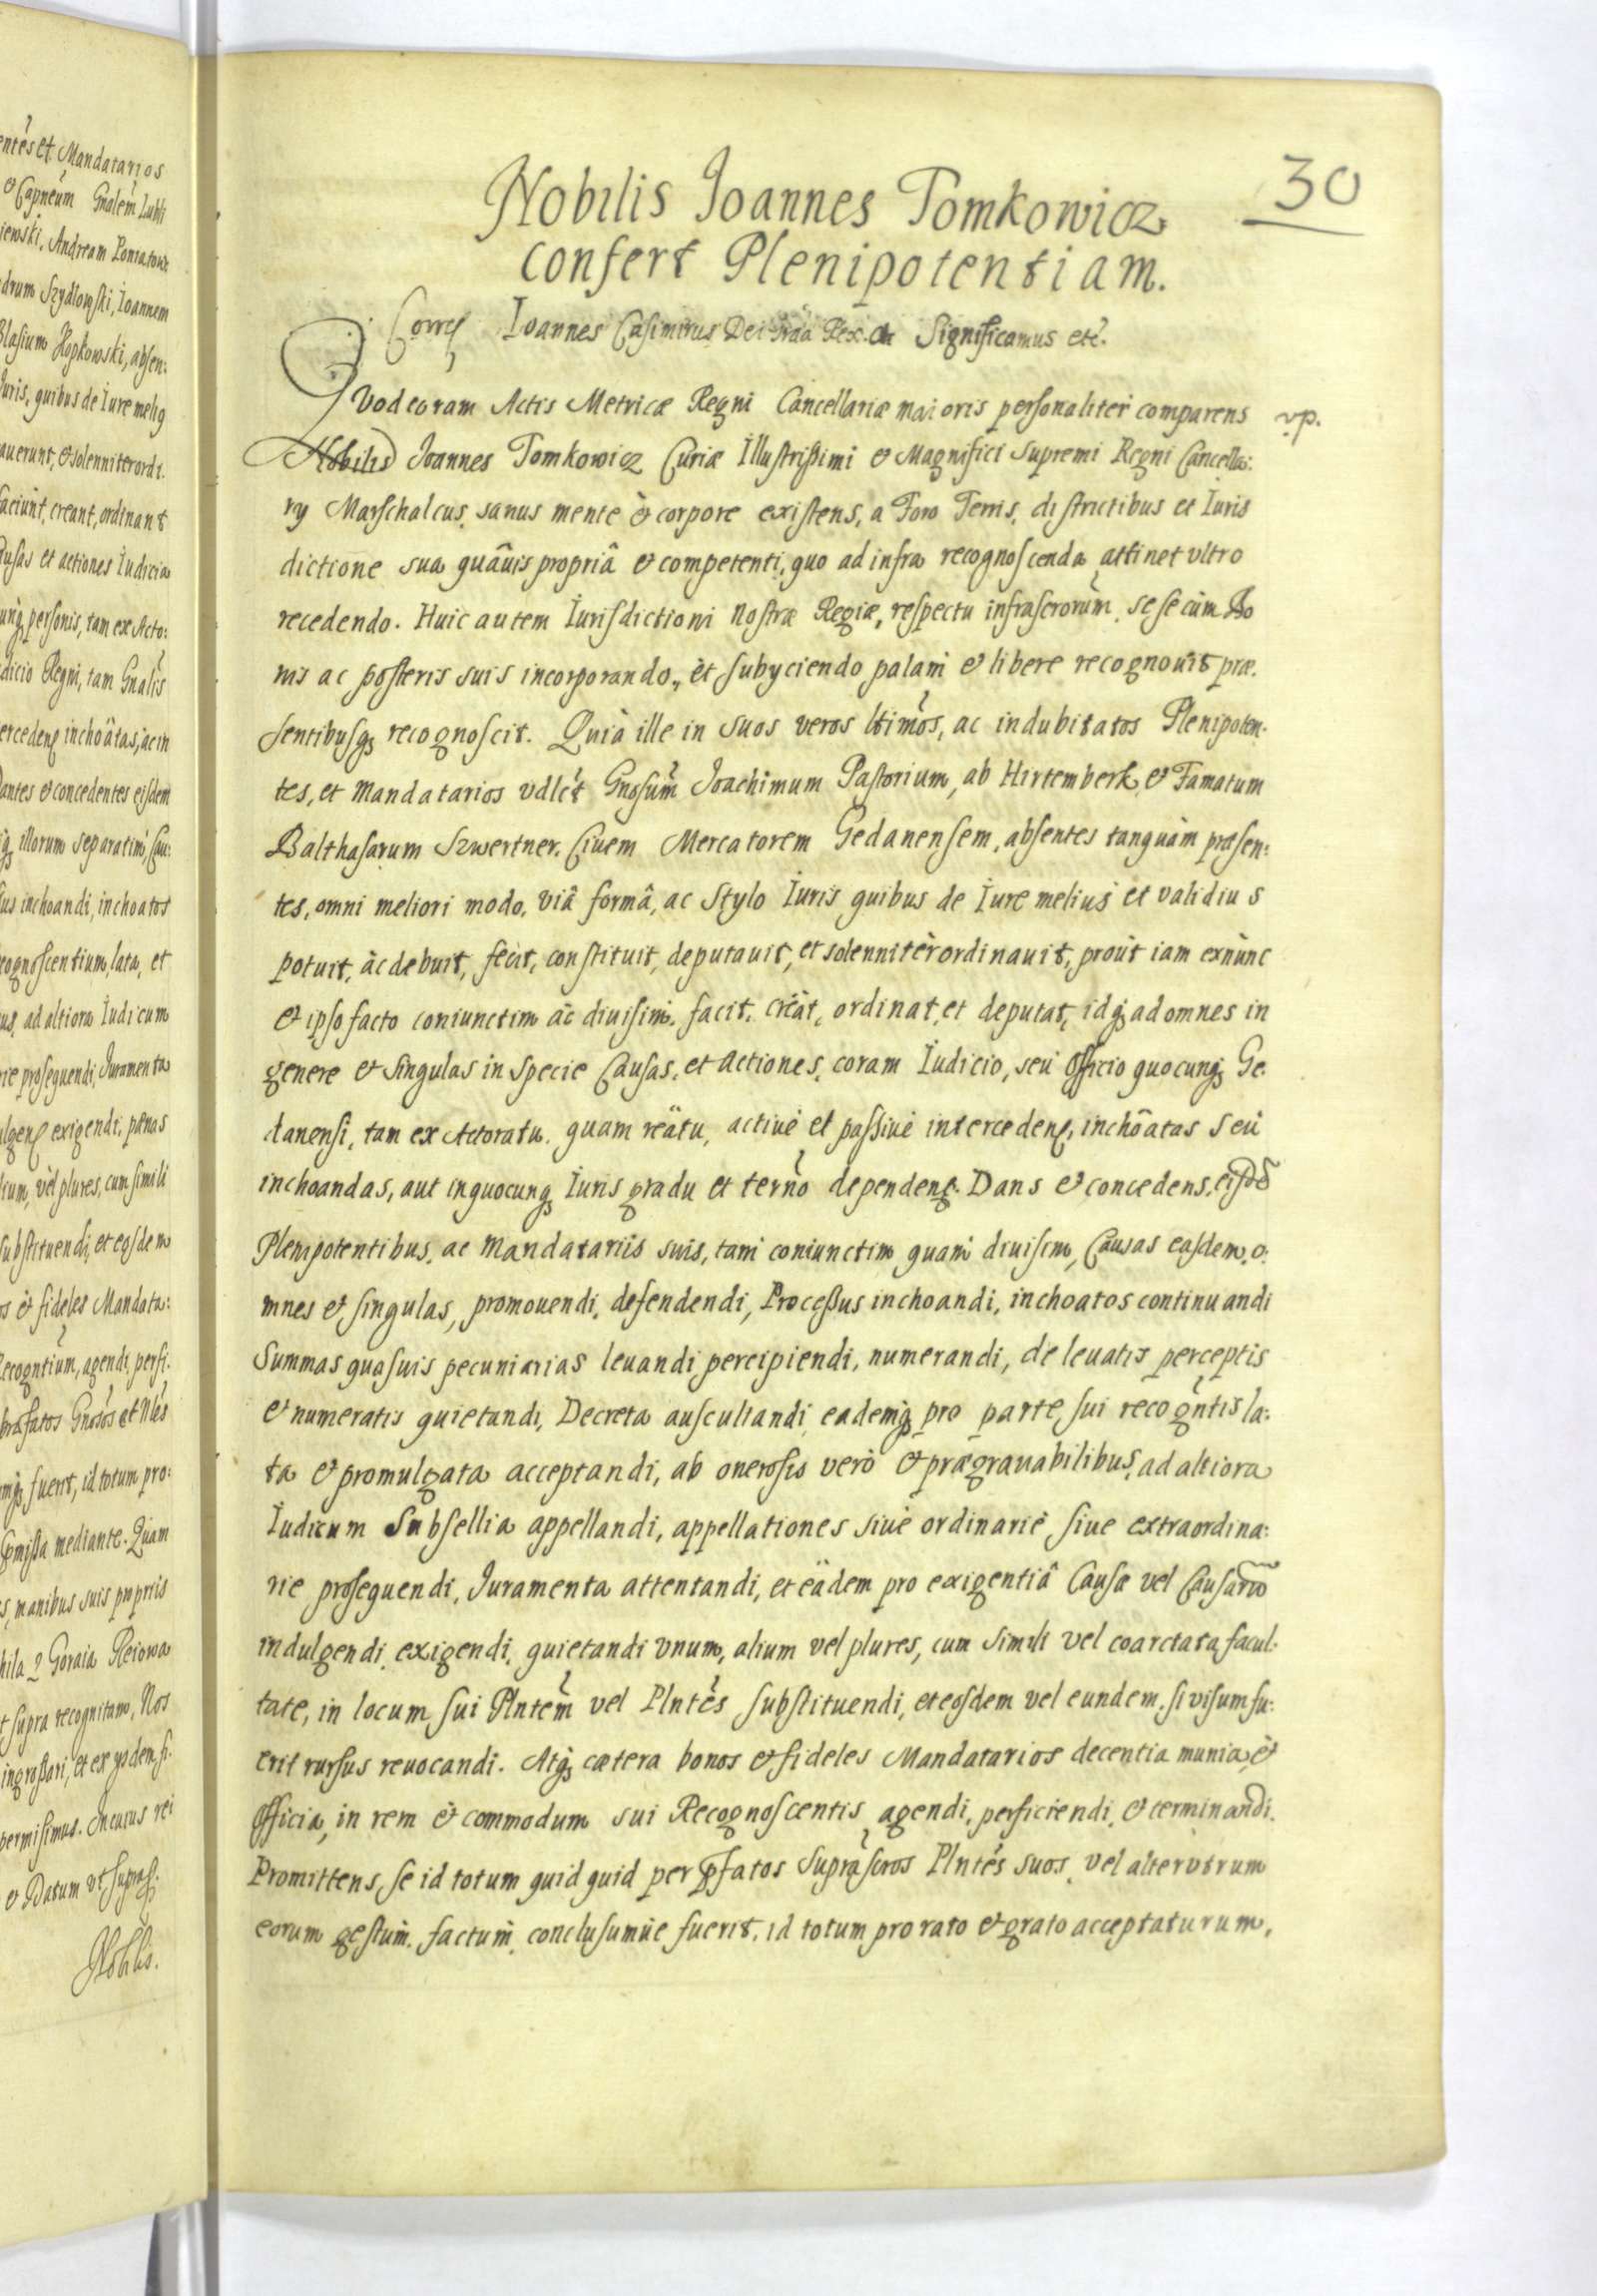 entes et Mandatarios
et Capneum Gnalem Lubli
iewski, Andream Poniatows
drum Szydlowski, Ioannem
Blasium Kopkowski, absen:
Iuris, quibus de Iure meliq
auerunt, et solenniter ordi.
faciunt, creant, ordinant
ausas et actiones Iudicia
unq personis, tam ex Acto:
dicio Regni, tam Gnalis
ercedenʒ inchoatas, ac in
antes et concedentes eisdem
q illorum separatim, Cau:
sus inchoandi, inchoatos
cognoscentium, lata, et
us, ad altiora Iudicum
rie prosequendi, Iuramenta
ulgenʒ exigendi, pœnas
lium, vel plures, cum simili
substituendi, et eosdem
os et fideles Mandata:
Recogntium, agendi, perfi:
præfatos Gnosos et Nles
mq fuerit, id totum pro:
mediante. Quam
s, manibus suis proprijs
Goraia
t supra recognitam, Nos
ingrossari, et ex ysdem fi.
permisimus. In cuius rei
et Datum vt supra.
Nobilis.
30
Nobilis Ioannes Tomkowicz
confert Plenipotentiam.
Ioannes Casimirus Dei Gratia Rex. Significamus etc.
Quod coram Actis Metricæ Regni Cancellariæ maioris personaliter comparens vp.
Nobilis Ioannes Tomkowicz Curiæ Illustrißimi et Magnifici Supremi Regni Cancella:
ry Marschalcus, sanus mente et corpore existens, a Foro Terris, districtibus et Iuris
dictione sua quâuis propriâ et competenti, quo ad infra recognoscenda attinet vltro
recedendo. Huic autem Iurisdictioni nostræ Regiæ, respectu infrascrorum, sese cum bo
nis ac posteris suis incorporando, et subyciendo palam et libere recognouit præ.
sentibusqʒ recognoscit. Quià ille in suos veros ltimos, ac indubitatos Plenipoten.
tes, et mandatarios vdlct Gnosum Ioachimum Pastorium, ab Hirtemberk, et Famatum
Balthasarum Szwertner, Ciuem Mercatorem Gedanensem, absentes tanquàm præsen:
tes, omni meliori modo, viâ formâ, ac stylo Iuris quibus de Iure melius et validius
potuit, ac debuit, fecit, constituit, deputauit, et solenniter ordinauit, proùt iam exnùnc
et ipso facto coniunctim ac diuisim, facit, creät, ordinat, et deputat, idqʒ ad omnes in
genere et singulas in specie Causas, et actiones, coram Iudicio, seu Officio quocunqʒ Ge.
danensi, tam ex Actoratu, quam reätu, actiuè et passiuè intercedenʒ, inchôatas seu
inchoandas, aut in quocunqʒ Iuris gradu et terno dependenʒ. Dans et concedens, eisdẽ
Plenipotentibus, ac mandatariis suis, tam coniunctim quam diuisim, Causas easdem, o:
mnes et singulas, promouendi, defendendi, Proceßus inchoandi, inchoatos continuandi
Summas quasuis pecuniarias leuandi percipiendi, numerandi, de leuatis perceptis
et numeratis quietandi, Decreta auscultandi eademqʒ pro parte sui recogntis la:
ta et promulgata acceptandi, ab onerosis verò et prægrauabilibus, ad altiora
Iudicum Subsellia appellandi, appellationes siuè ordinariè siue extraordina:
rie prosequendi, Iuramenta attentandi, et eädem pro exigentiâ Causæ vel Causarũ
indulgendi, exigendi, quietandi vnum, alium vel plures, cum simili vel coarctata facul:
tate, in locum sui Plntem vel Plntes substituendi, et eosdem vel eundem, si visum fu:
erit rursus reuocandi. Atqʒ cætera bonos et fideles Mandatarios decentia munia, et
officia, in rem et commodum sui Recognoscentis agendi, perficiendi, et terminandi.
Promittens, se id totum quid quid per præfatos suprascros Plntes suos, vel alterutrum
eorum gestum, factum, conclusumue fuerit, id totum pro rato et grato acceptaturum,